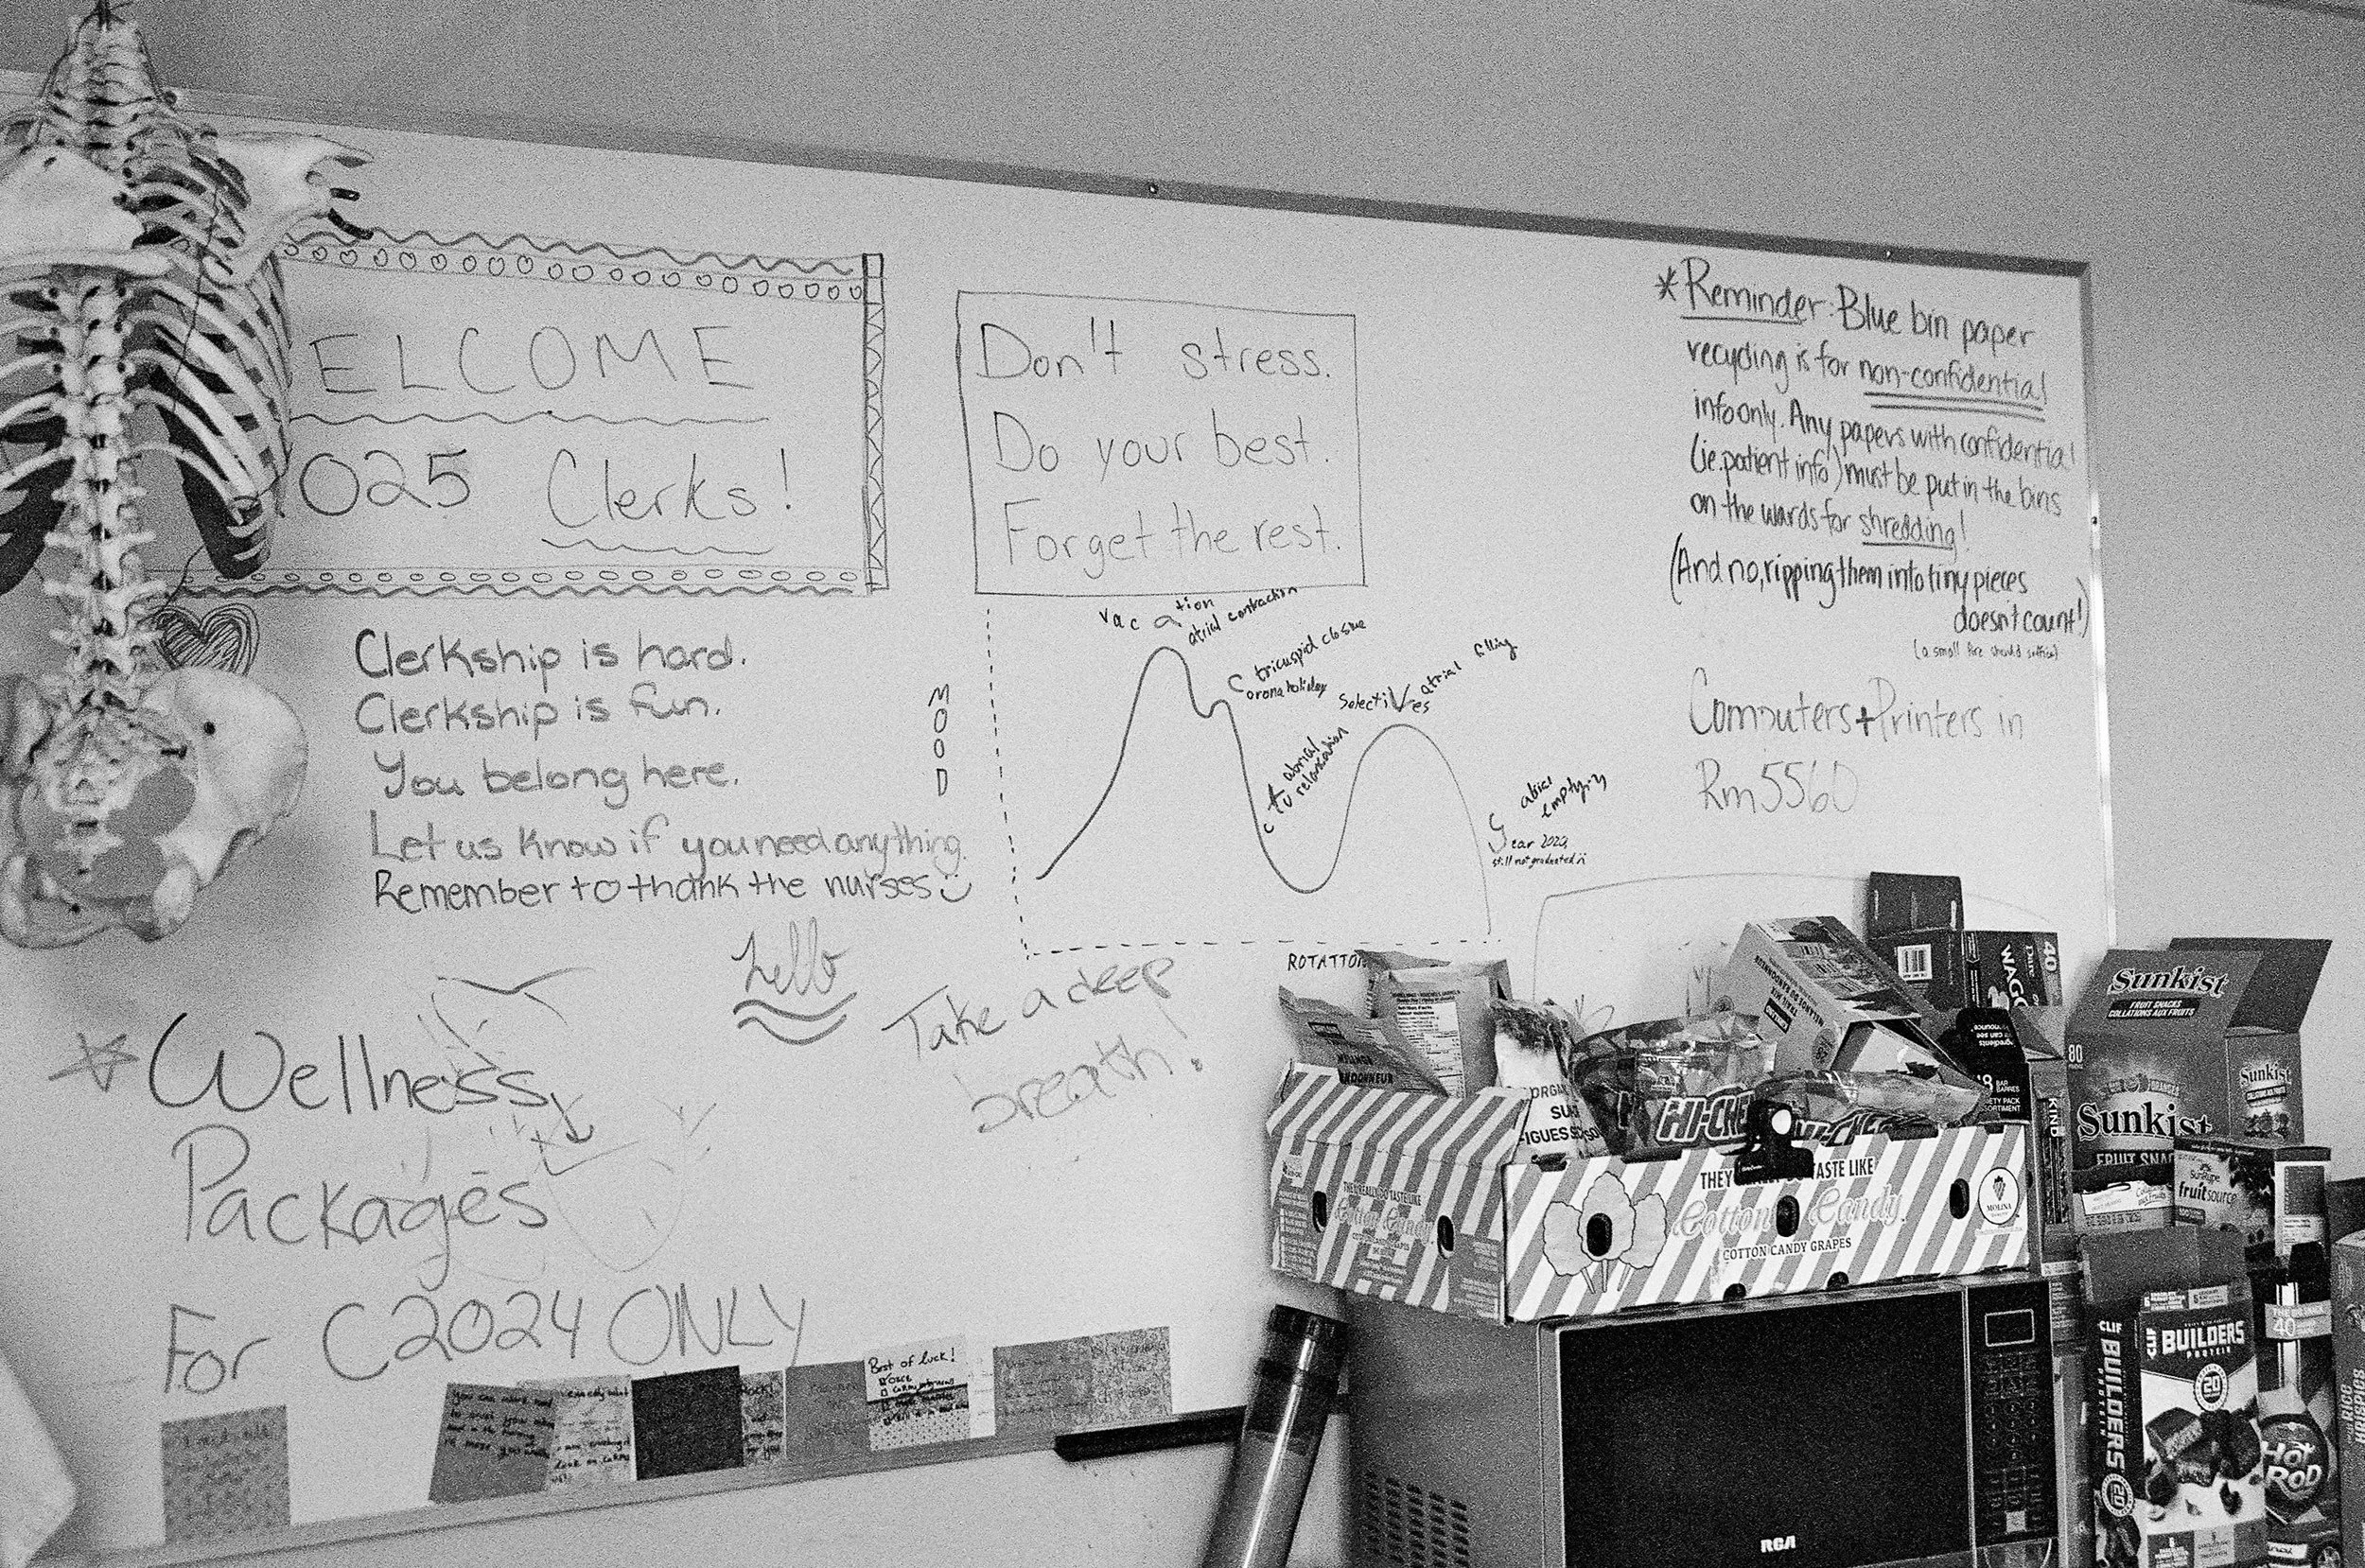 ELCOME
2025 Clerks!
Clerkship is hard.
Clerkship is fun.
You belong here.
Let us know if you need anything.
Remember to thank the nurses
hello
Take a deep
breath!
Wellness
Packages
For C2024 ONLY
Don't stress.
Do your best.
Forget the rest.
MOOD
vacation
atrial contraction
tricuspid closure
Corona holiday
SelectiVes
atrial filling
atrial
relaxation
atrial
emptying
Year 2023,
still not graduated
ROTATIO
*Reminder: Blue bin paper
recycling is for non-confidential
info only. Any papers with confidential
(ie. patient info) must be put in the bins
on the wards for shredding!
(And no, ripping them into tiny pieces
doesn't count!)
(a small fire should suffice)
Computers + Printers in
Rm 5560
Best of luck!
HI-CHEW
THEY
TASTE LIKE
Cotton Candy
COTTON CANDY GRAPES
MOLINA
THEY REALLY DO TASTE LIKE
Cotton Candy
40
WAG
KIND
80
Sunkist
FRUIT SNACKS
COLLATIONS AUX FRUITS
Sunkist
Sunkist
FRUIT SNA
SunRype
fruitsource
CLIF
BUILDERS
PROTEIN
20
CLIF
BUILDERS
20
40
HOT
ROD
RICE
KRISPIES
RCA